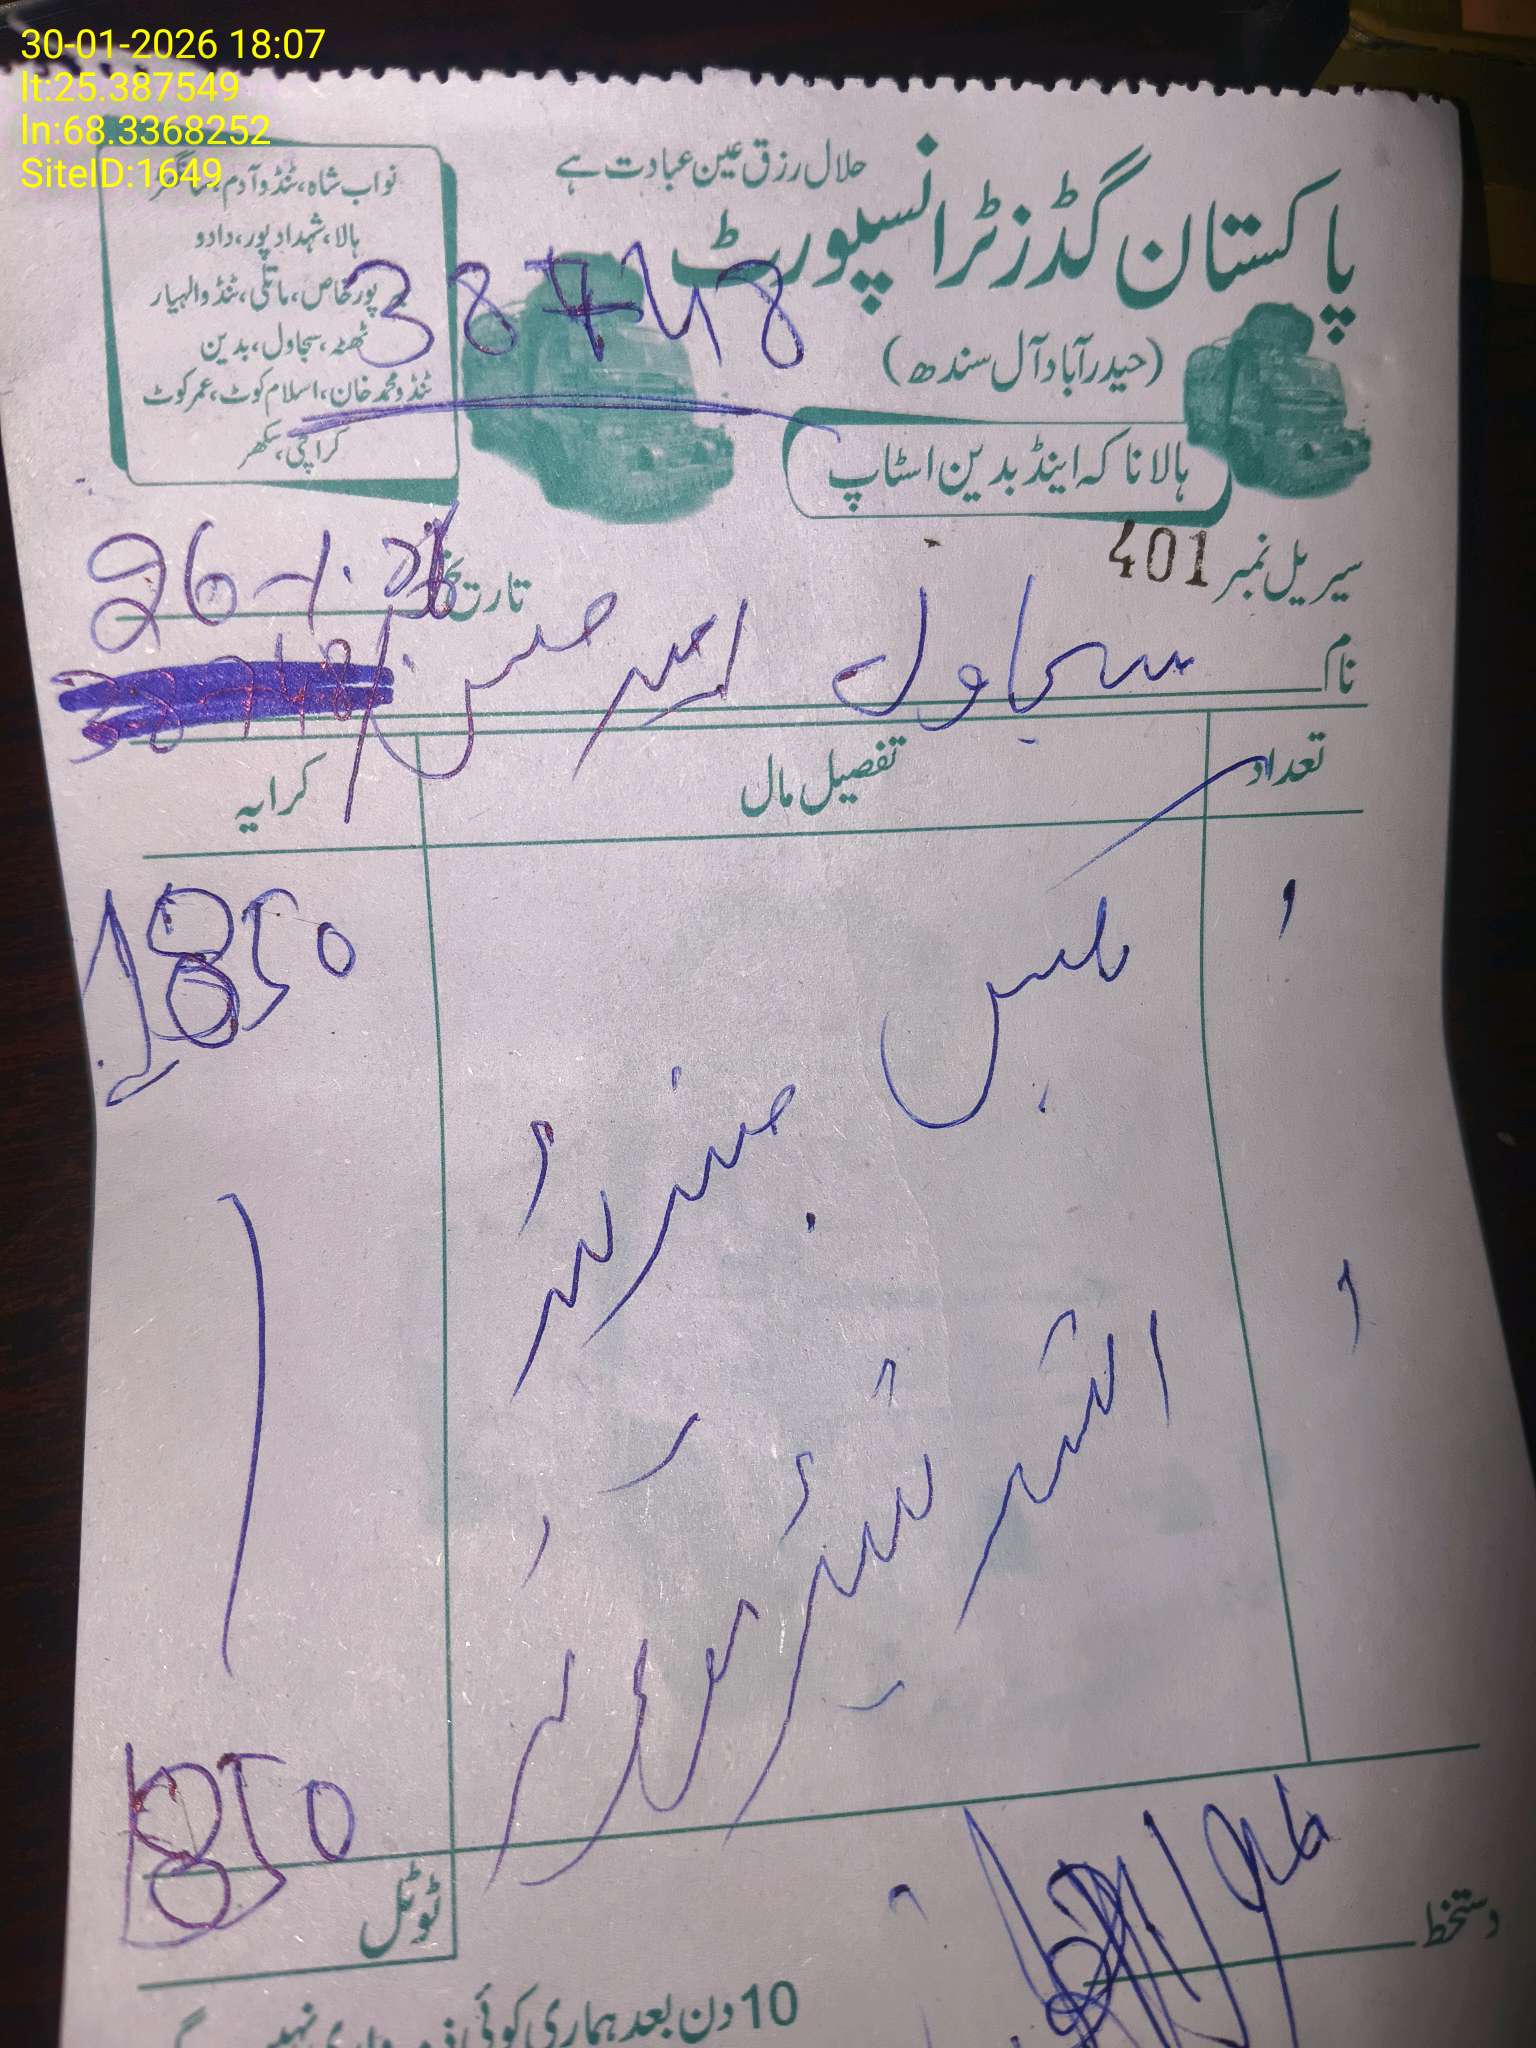 30-01-2026 18:07
lt:25.387549
ln:68.3368252
SiteID:1649
حلال رزق عین عبادت ہے
پاکستان گڈز ٹرانسپورٹ
(حیدرآباد آل سندھ)
ہالا ناکہ اینڈ بدین اسٹاپ
نواب شاہ، ٹنڈوآدم،
ہالا، شہداد پور، دادو
پورخاص، ماتلی، ٹنڈوالہیار
ٹھٹھہ، سجاول، بدین
ٹنڈو محمد خان، اسلام کوٹ، عمر کوٹ
کراچی، سکھر
38748
سیریل نمبر 401
تاریخ 26-1-26
نام سجاول امیر حسن
تعداد تفصیل مال کرایہ
1 بکس جنریٹر 1850
1
ٹوٹل 1850
دستخط
10 دن بعد ہماری کوئی ذمہ داری نہیں